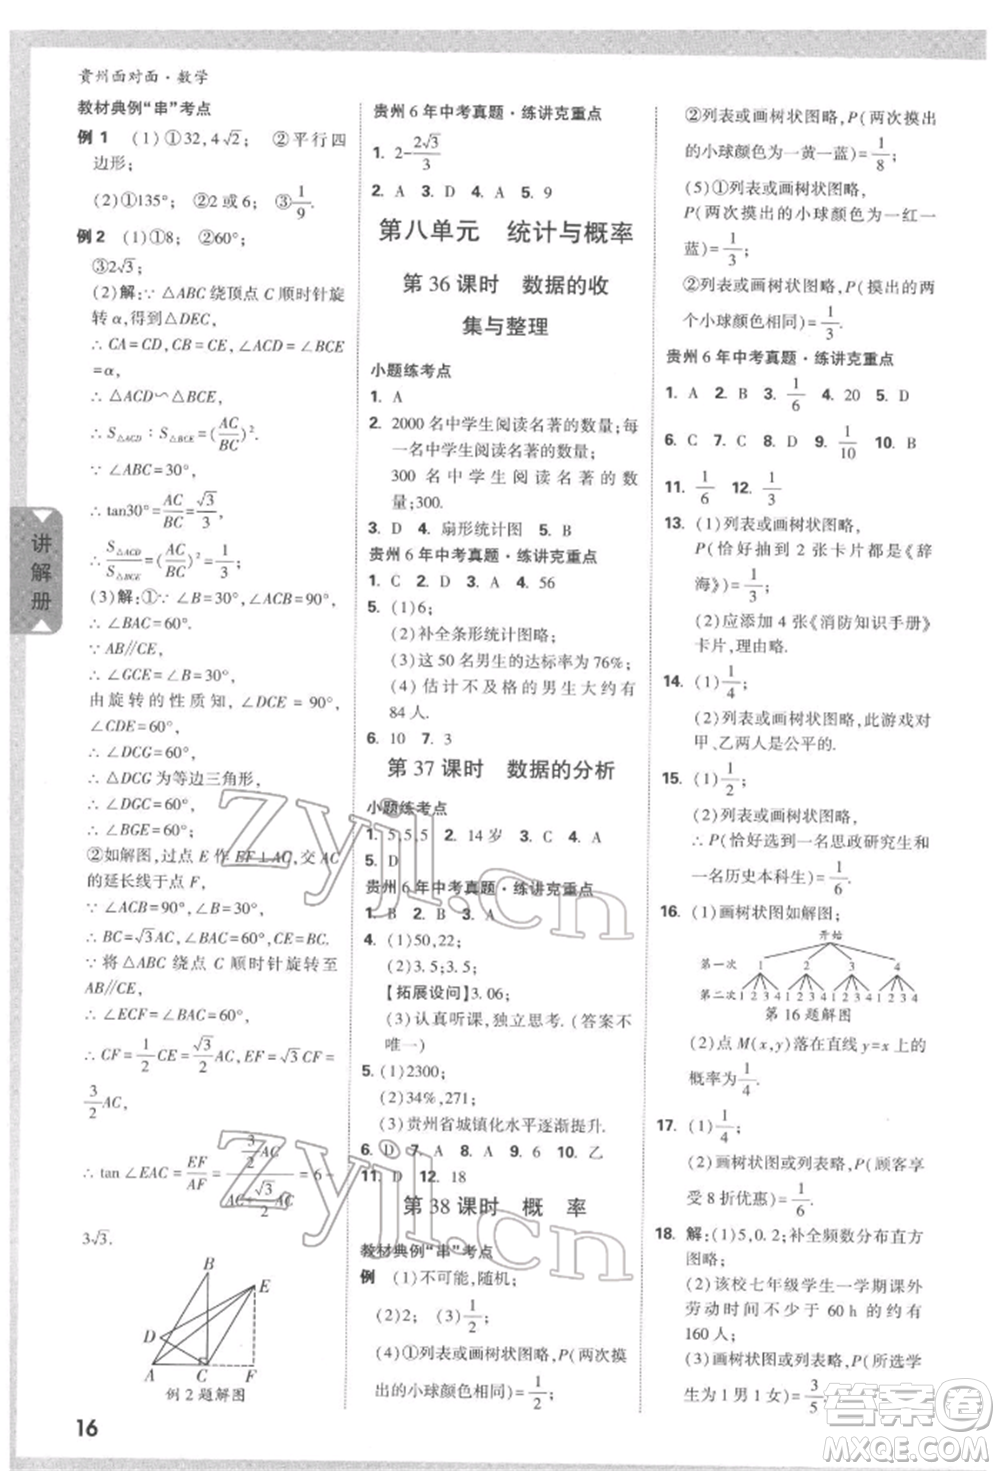 贵州面对面·数学
教材典例“串”考点
例 1 (1)①32,4√2; ②平行四
边形;
(2)①135°; ②2或6; ③1/9.
例 2 (1)①8; ②60°;
③2√3;
(2)解:∵ △ABC 绕顶点 C 顺时针旋
转 α,得到△DEC,
∴ CA=CD,CB=CE,∠ACD=∠BCE
=α,
∴ △ACD∽△BCE,
∴ S△ACD : S△BCE=(AC/BC)².
∵ ∠ABC=30°,
∴ tan30°=AC/BC=√3/3,
∴ S△ACD/S△BCE=(AC/BC)²=1/3;
(3)解:①∵ ∠B=30°,∠ACB=90°,
∴ ∠BAC=60°.
∵ AB∥CE,
∴ ∠GCE=∠B=30°,
由旋转的性质知,∠DCE=90°,
∠CDE=60°,
∴ ∠DCG=60°,
∴ △DCG为等边三角形,
∴ ∠DGC=60°,
∴ ∠BGE=60°;
②如解图,过点 E 作 EF⊥AC,交 AC
的延长线于点 F,
∵ ∠ACB=90°,∠BAC=60°,
∴ BC=√3AC=CE.
∵ 将△ABC 绕点 C 顺时针旋转至
AB∥CE,
∴ ∠ECF=∠BAC=60°,
∴ CF=1/2CE=√3/2AC,EF=√3CF=
3/2AC,
∴ tan ∠EAC=EF/AF=(3/2AC)/(AC+√3/2AC)=6-
3√3.
B
E
D
A
C
F
例 2 题解图
16
讲解册
贵州 6 年中考真题·练讲克重点
1. 2-2√3/3
2. A 3. D 4. A 5. 9
第八单元 统计与概率
第 36 课时 数据的收
集与整理
小题练考点
1. A
2. 2000 名中学生阅读名著的数量;每
一名中学生阅读名著的数量;
300 名中学生阅读名著的数
量;300.
3. D 4. 扇形统计图 5. B
贵州 6 年中考真题·练讲克重点
1. C 2. D 3. A 4. 56
5. (1)6;
(2)补全条形统计图略;
(3)这 50 名男生的达标率为 76%;
(4)估计不及格的男生大约有
84 人.
6. 10 7. 3
第 37 课时 数据的分析
小题练考点
1. 5,5,5 2. 14 岁 3. C 4. A
5. D
贵州 6 年中考真题·练讲克重点
1. B 2. B 3. A
4. (1)50,22;
(2)3.5;3.5;
【拓展设问】3.06;
(3)认真听课,独立思考.(答案不
唯一)
5. (1)2300;
(2)34%,271;
(3)贵州省城镇化水平逐渐提升.
6. D 7. A 8. A 9. A 10. 乙
11. D 12. 18
第 38 课时 概 率
教材典例“串”考点
例 (1)不可能,随机;
(2)2; (3)1/2;
(4)①列表或画树状图略,P(两次摸
出的小球颜色相同)=1/2;
②列表或画树状图略,P(两次摸出
的小球颜色为一黄一蓝)=1/8;
(5)①列表或画树状图略,
P(两次摸出的小球颜色为一红一
蓝)=1/3;
②列表或画树状图略,P(摸出的
2 个小球颜色相同)=1/3.
贵州 6 年中考真题·练讲克重点
1. A 2. B 3. 1/6 4. 20 5. D
6. C 7. C 8. D 9. 1/10 10. B
11. 1/6 12. 1/3
13. (1)列表或画树状图略,
P(恰好抽到 2 张卡片都是《辞
海》)=1/3;
(2)应添加 4 张《消防知识手册》
卡片,理由略.
14. (1)1/4;
(2)列表或画树状图略,此游戏对
甲、乙两人是公平的.
15. (1)1/2;
(2)列表或画树状图略,
∴ P(恰好选到一名思政研究生和
一名历史本科生)=1/6.
16. (1)画树状图如解图;
开始
第一次 1 2 3 4
第二次 1 2 3 4 1 2 3 4 1 2 3 4 1 2 3 4
第 16 题解图
(2)点 M(x,y)落在直线 y=x 上的
概率为1/4.
17. (1)1/4;
(2)画树状图或列表略,P(顾客享
受 8 折优惠)=1/6.
18. 解:(1)5,0.2;补全频数分布直方
图略;
(2)该校七年级学生一学期课外
劳动时间不少于 60 h 的约有
160 人;
(3)画树状图或列表略,P(所选学
生为 1 男 1 女)=3/5.
zyjl.cn
zyjl.cn
答案圈
MXQE.COM